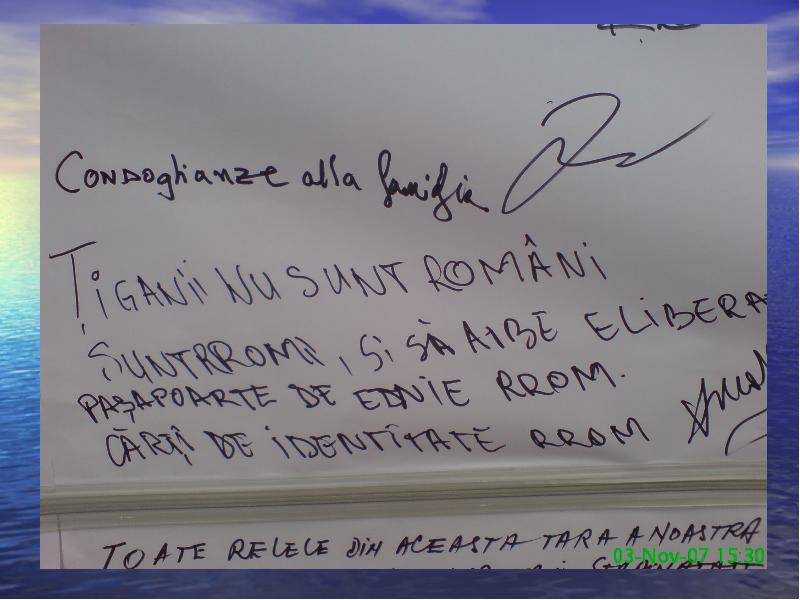 Condoglianze alla famiglia
ȚIGANII NU SUNT ROMÂNI
SUNT RROMII, ȘI SĂ AIBE ELIBERA
PAȘAPOARTE DE EDNIE RROM.
CĂRȚI DE IDENTITATE RROM
TOATE RELELE DIN ACEASTA TARA A NOASTRA
03-Nov-07 15:30